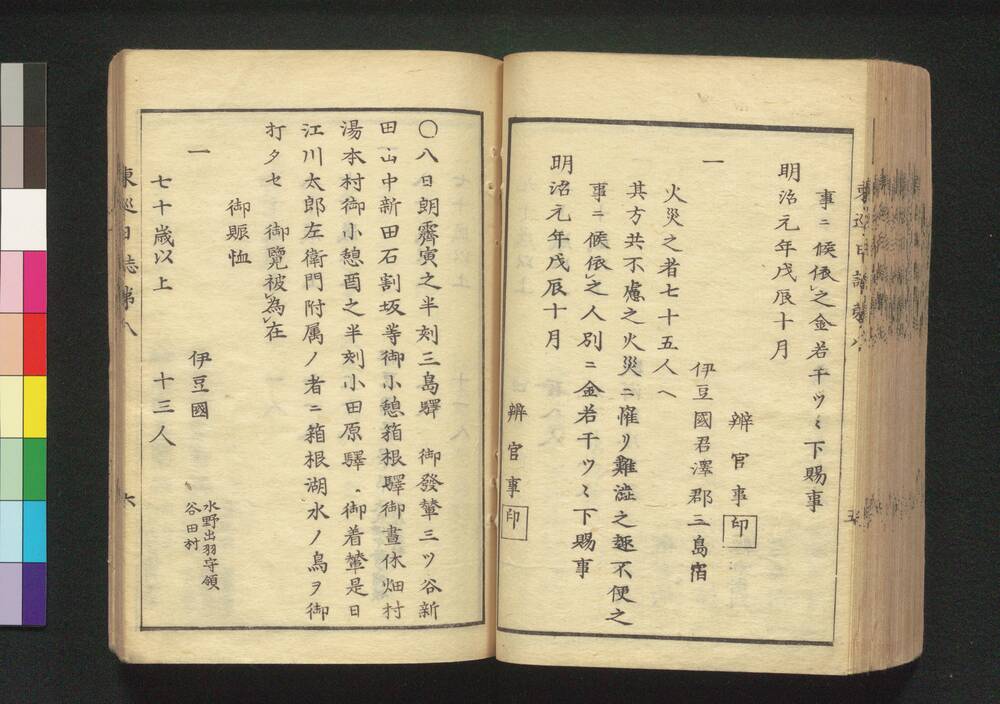 事ニ候依之金若干ツヽ下賜事
明治元年戊辰十月
辨官事印
一
伊豆國君澤郡三島宿
火災之者七十五人へ
其方共不慮之火災ニ罹リ難澁之趣不便之
事ニ候依之人別ニ金若干ツヽ下賜事
明治元年戊辰十月
辨官事印
〇八日朗霽寅之半刻三島驛 御發輦三ツ谷新
田山中新田石割坂等御小憩箱根驛御晝休畑村
湯本村御小憩酉之半刻小田原驛 御着輦是日
江川太郎左衛門附属ノ者ニ箱根湖水ノ鳥ヲ御
打タセ 御覽被為在
御賑恤
一
伊豆國
水野出羽守領
谷田村
七十歳以上 十三人
東巡日誌第八 六